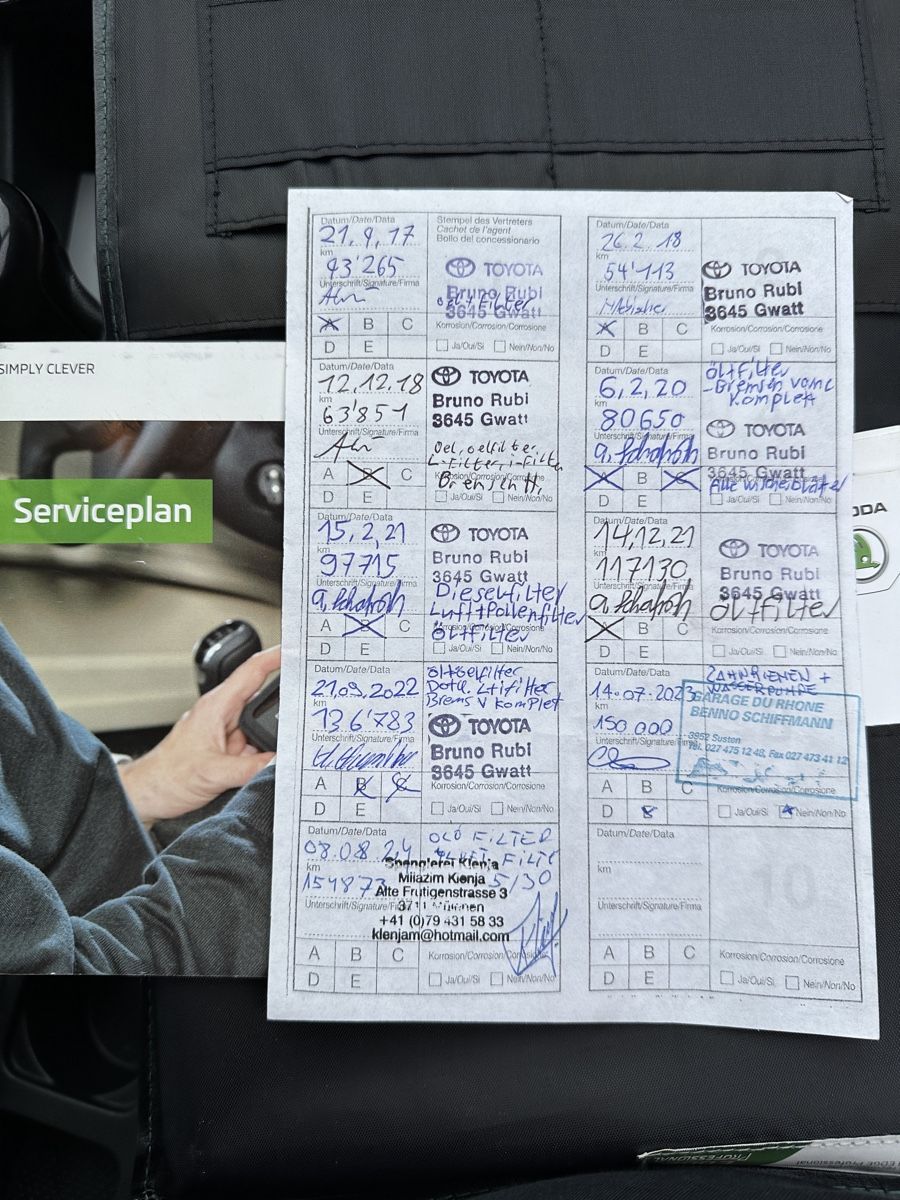 SIMPLY CLEVER
Serviceplan
Datum/Date/Data
21.9.17
km
93'265
Unterschrift/Signature/Firma
Stempel des Vertreters
Cachet de l'agent
Bollo del concessionario
TOYOTA
Bruno Rubi
3645 Gwatt
A B C
D E
Korrosion/Corrosion/Corrosione
Ja/Oui/Si Nein/Non/No
Datum/Date/Data
26.2.18
km
54'113
Unterschrift/Signature/Firma
TOYOTA
Bruno Rubi
3645 Gwatt
A B C
D E
Korrosion/Corrosion/Corrosione
Ja/Oui/Si Nein/Non/No
Datum/Date/Data
12.12.18
km
63'851
Unterschrift/Signature/Firma
TOYOTA
Bruno Rubi
3645 Gwatt
Oel, oelfilter,
L-Filter, i-Filter
A B C
D E
Ja/Oui/Si Nein/Non/No
Datum/Date/Data
6,2,20
km
80650
Unterschrift/Signature/Firma
öltfilter
-Bremsen
Komplett
TOYOTA
Bruno Rubi
3645 Gwatt
Alle Wischerblätter
A B C
D E
Ja/Oui/Si Nein/Non/No
Datum/Date/Data
15,2,21
km
97715
Unterschrift/Signature/Firma
TOYOTA
Bruno Rubi
3645 Gwatt
Dieselfilter
Luftfpollenfilter
öltfilter
A B C
D E
Ja/Oui/Si Nein/Non/No
Datum/Date/Data
14,12,21
km
117130
Unterschrift/Signature/Firma
TOYOTA
Bruno Rubi
3645 Gwatt
öltfilter
A B C
D E
Korrosion/Corrosion/Corrosione
Ja/Oui/Si Nein/Non/No
Datum/Date/Data
21.09.2022
km
136'783
Unterschrift/Signature/Firma
Brems V komplet
TOYOTA
Bruno Rubi
3645 Gwatt
A B C
D E
Korrosion/Corrosion/Corrosione
Ja/Oui/Si Nein/Non/No
Datum/Date/Data
14.07.2023
km
150 000
Unterschrift/Signature/Firma
ZAHNRIEMEN +
WASSERPUMPE
GARAGE DU RHONE
BENNO SCHIFFMANN
3952 Susten
Tel. 027 475 12 48, Fax 027 473 41 12
A B C
D
Korrosion/Corrosion/Corrosione
Ja/Oui/Si Nein/Non/No
Datum/Date/Data
08.08 24
km
154873
Unterschrift/Signature/Firma
FILTER
5/30
Spenglerei Klenja
Milazim Klenja
Alte Frutigenstrasse 3
+41 (0)79 431 58 33
klenjam@hotmail.com
A B C
D E
Korrosion/Corrosion/Corrosione
Ja/Oui/Si Nein/Non/No
Datum/Date/Data
km
Unterschrift/Signature/Firma
10
A B C
D E
Korrosion/Corrosion/Corrosione
Ja/Oui/Si Nein/Non/No